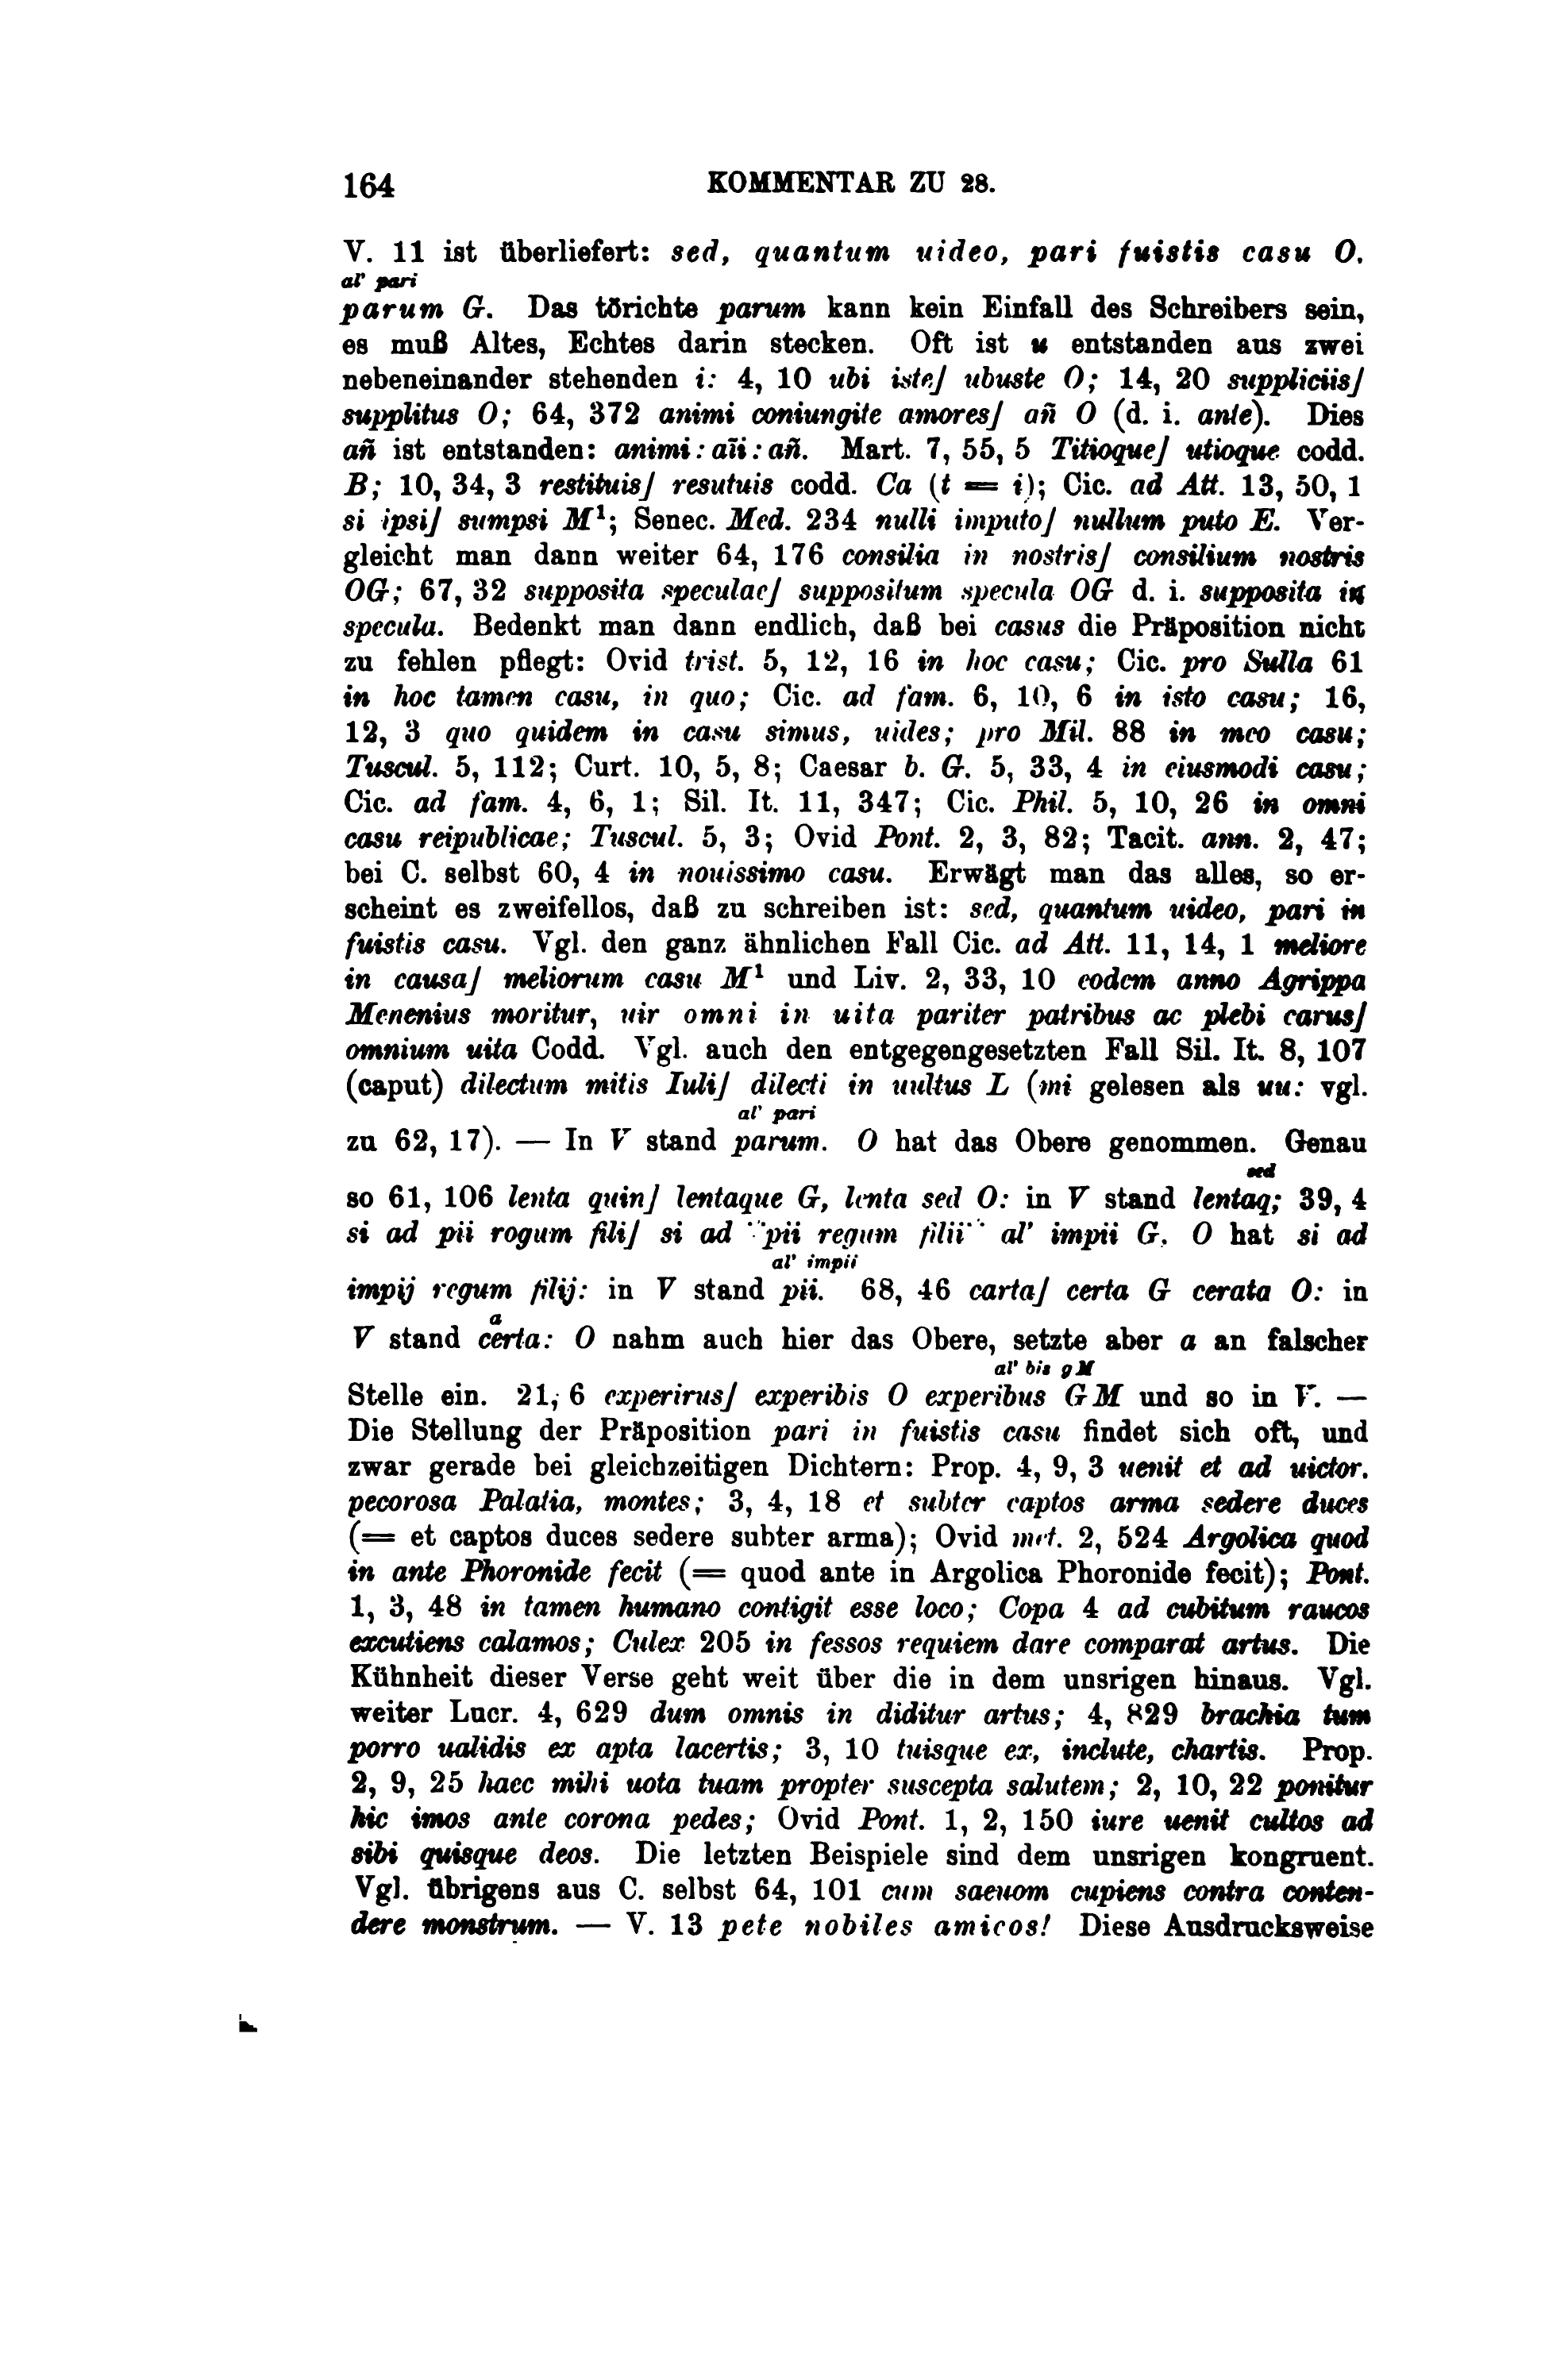 164 KOMMENTAR ZU 28.
V. 11 ist überliefert: sed, quantum uideo, pari fuistis casu O.
al' pari
parum G. Das törichte parum kann kein Einfall des Schreibers sein,
es muß Altes, Echtes darin stecken. Oft ist u entstanden aus zwei
nebeneinander stehenden i: 4, 10 ubi iste] ubuste O; 14, 20 suppliciis]
supplitus O; 64, 372 animi coniungite amores] añ O (d. i. ante). Dies
añ ist entstanden: animi: aīi: añ. Mart. 7, 55, 5 Titioque] utioque codd.
B; 10, 34, 3 restituis] resutuis codd. Ca (t = i); Cic. ad Att. 13, 50, 1
si ipsi] sumpsi M¹; Senec. Med. 234 nulli imputo] nullum puto E. Ver-
gleicht man dann weiter 64, 176 consilia in nostris] consilium nostris
OG; 67, 32 supposita speculae] suppositum specula OG d. i. supposita in
specula. Bedenkt man dann endlich, daß bei casus die Präposition nicht
zu fehlen pflegt: Ovid trist. 5, 12, 16 in hoc casu; Cic. pro Sulla 61
in hoc tamen casu, in quo; Cic. ad fam. 6, 10, 6 in isto casu; 16,
12, 3 quo quidem in casu simus, uides; pro Mil. 88 in meo casu;
Tuscul. 5, 112; Curt. 10, 5, 8; Caesar b. G. 5, 33, 4 in eiusmodi casu;
Cic. ad fam. 4, 6, 1; Sil. It. 11, 347; Cic. Phil. 5, 10, 26 in omni
casu reipublicae; Tuscul. 5, 3; Ovid Pont. 2, 3, 82; Tacit. ann. 2, 47;
bei C. selbst 60, 4 in nouissimo casu. Erwägt man das alles, so er-
scheint es zweifellos, daß zu schreiben ist: sed, quantum uideo, pari in
fuistis casu. Vgl. den ganz ähnlichen Fall Cic. ad Att. 11, 14, 1 meliore
in causa] meliorum casu M¹ und Liv. 2, 33, 10 eodem anno Agrippa
Menenius moritur, uir omni in uita pariter patribus ac plebi carus]
omnium uita Codd. Vgl. auch den entgegengesetzten Fall Sil. It. 8, 107
(caput) dilectum mitis Iuli] dilecti in uultus L (mi gelesen als uu: vgl.
al' pari
zu 62, 17). — In V stand parum. O hat das Obere genommen. Genau
sed
so 61, 106 lenta quin] lentaque G, lenta sed O: in V stand lentaq; 39, 4
si ad pii rogum fili] si ad ¨pii regum filii¨ al' impii G. O hat si ad
al' impii
impij regum filij: in V stand pii. 68, 46 carta] certa G cerata O: in
a
V stand certa: O nahm auch hier das Obere, setzte aber a an falscher
al' bis g M
Stelle ein. 21, 6 experirus] experibis O experibus GM und so in V. —
Die Stellung der Präposition pari in fuistis casu findet sich oft, und
zwar gerade bei gleichzeitigen Dichtern: Prop. 4, 9, 3 uenit et ad uictor.
pecorosa Palatia, montes; 3, 4, 18 et subter captos arma sedere duces
(= et captos duces sedere subter arma); Ovid met. 2, 524 Argolica quod
in ante Phoronide fecit (= quod ante in Argolica Phoronide fecit); Pont.
1, 3, 48 in tamen humano contigit esse loco; Copa 4 ad cubitum raucos
excutiens calamos; Culex 205 in fessos requiem dare comparat artus. Die
Kühnheit dieser Verse geht weit über die in dem unsrigen hinaus. Vgl.
weiter Lucr. 4, 629 dum omnis in diditur artus; 4, 829 brachia tum
porro ualidis ex apta lacertis; 3, 10 tuisque ex, inclute, chartis. Prop.
2, 9, 25 haec mihi uota tuam propter suscepta salutem; 2, 10, 22 ponitur
hic imos ante corona pedes; Ovid Pont. 1, 2, 150 iure uenit cultos ad
sibi quisque deos. Die letzten Beispiele sind dem unsrigen kongruent.
Vgl. übrigens aus C. selbst 64, 101 cum saeuom cupiens contra conten-
dere monstrum. — V. 13 pete nobiles amicos! Diese Ausdrucksweise